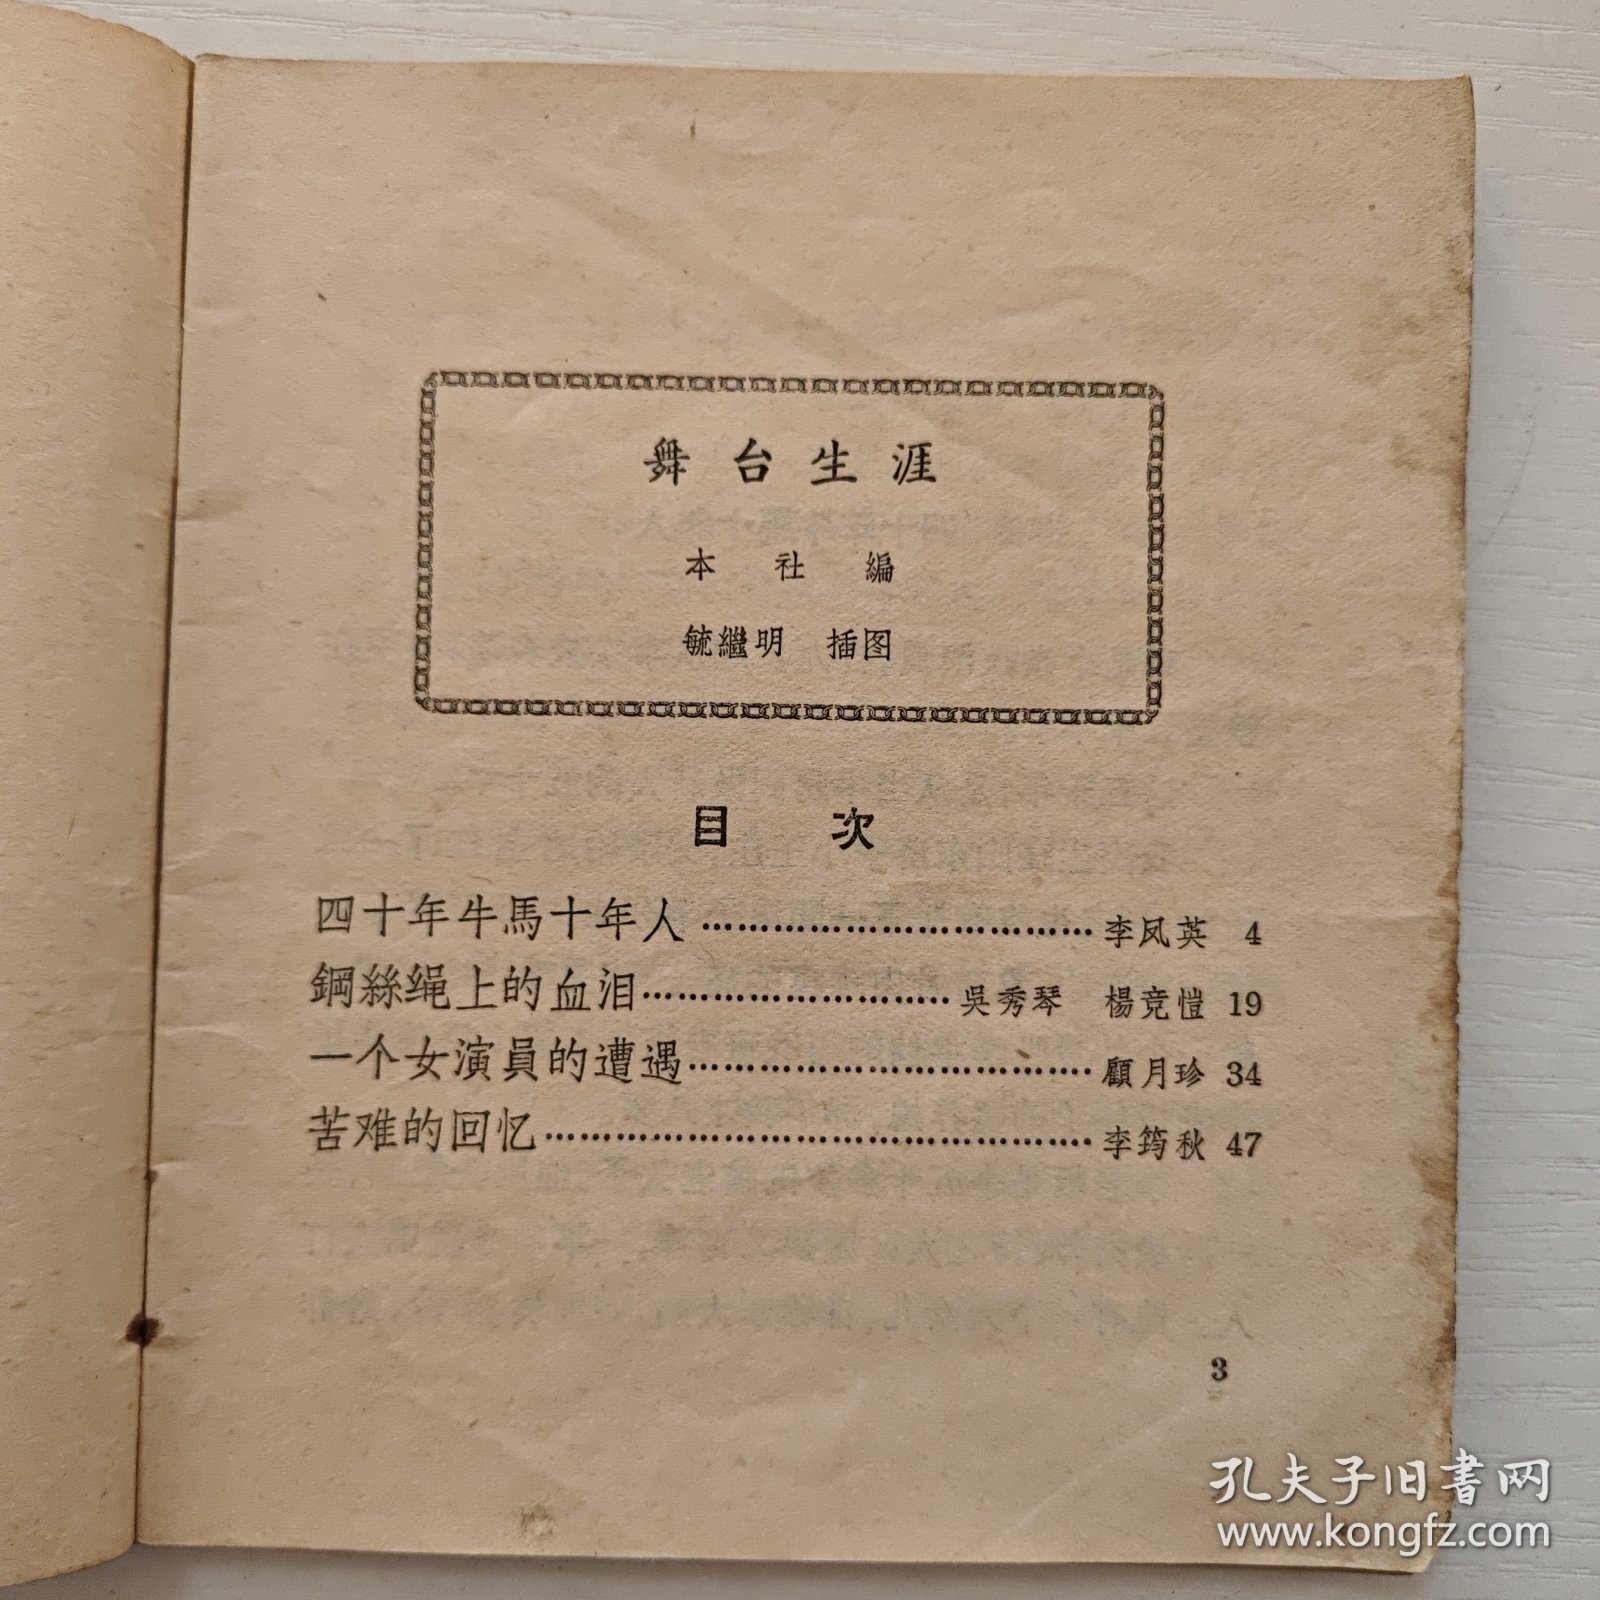 舞台生涯
本社編
毓繼明 插图
目次
四十年牛馬十年人……………………………李凤英 4
鋼絲绳上的血泪……………………吳秀琴 楊竞愷 19
一个女演員的遭遇……………………………顧月珍 34
苦难的回忆……………………………………李筠秋 47
3
孔夫子旧書网
www.kongfz.com